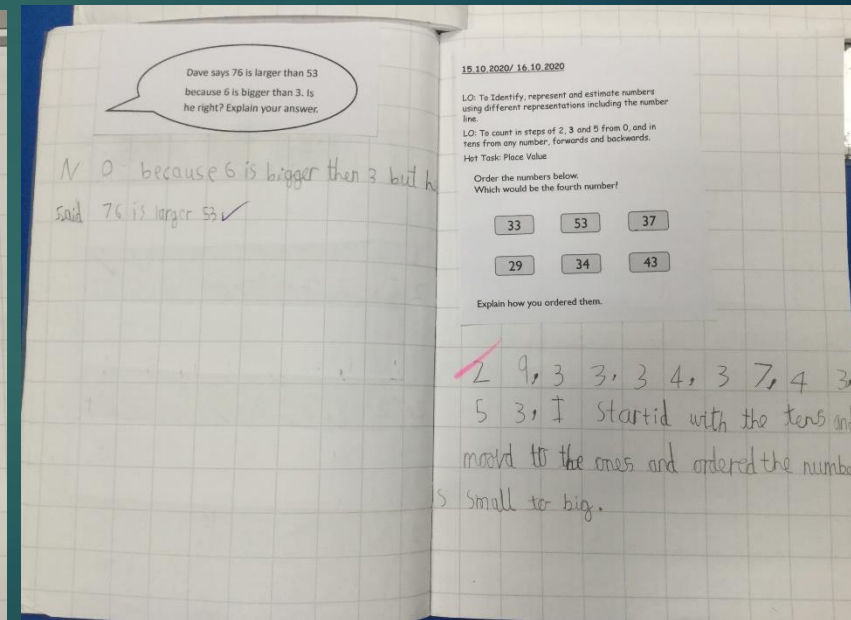 Dave says 76 is larger than 53
because 6 is bigger than 3. Is
he right? Explain your answer.
N O because 6 is bigger then 3 but h
said 76 is larger 53 ✓
15.10.2020/ 16.10.2020
LO: To Identify, represent and estimate numbers
using different representations including the number
line.
LO: To count in steps of 2, 3 and 5 from 0, and in
tens from any number, forwards and backwards.
Hot Task: Place Value
Order the numbers below.
Which would be the fourth number?
33 53 37
29 34 43
Explain how you ordered them.
2 9, 3 3, 3 4, 3 7, 4 3,
5 3, I startid with the tens and
moovd to the ones and ordered the numbe
s small to big.